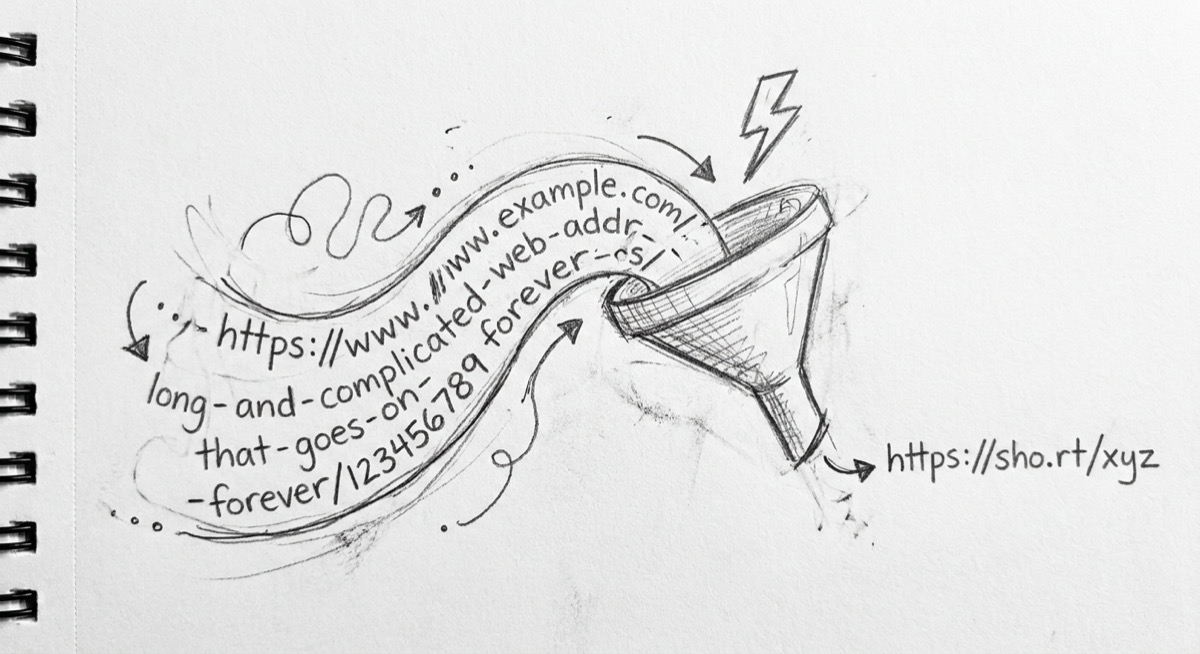 https://www.www.example.com/
long-and-complicated-web-addr-
that-goes-on- forever-os/
-forever/123456789
https://sho.rt/xyz